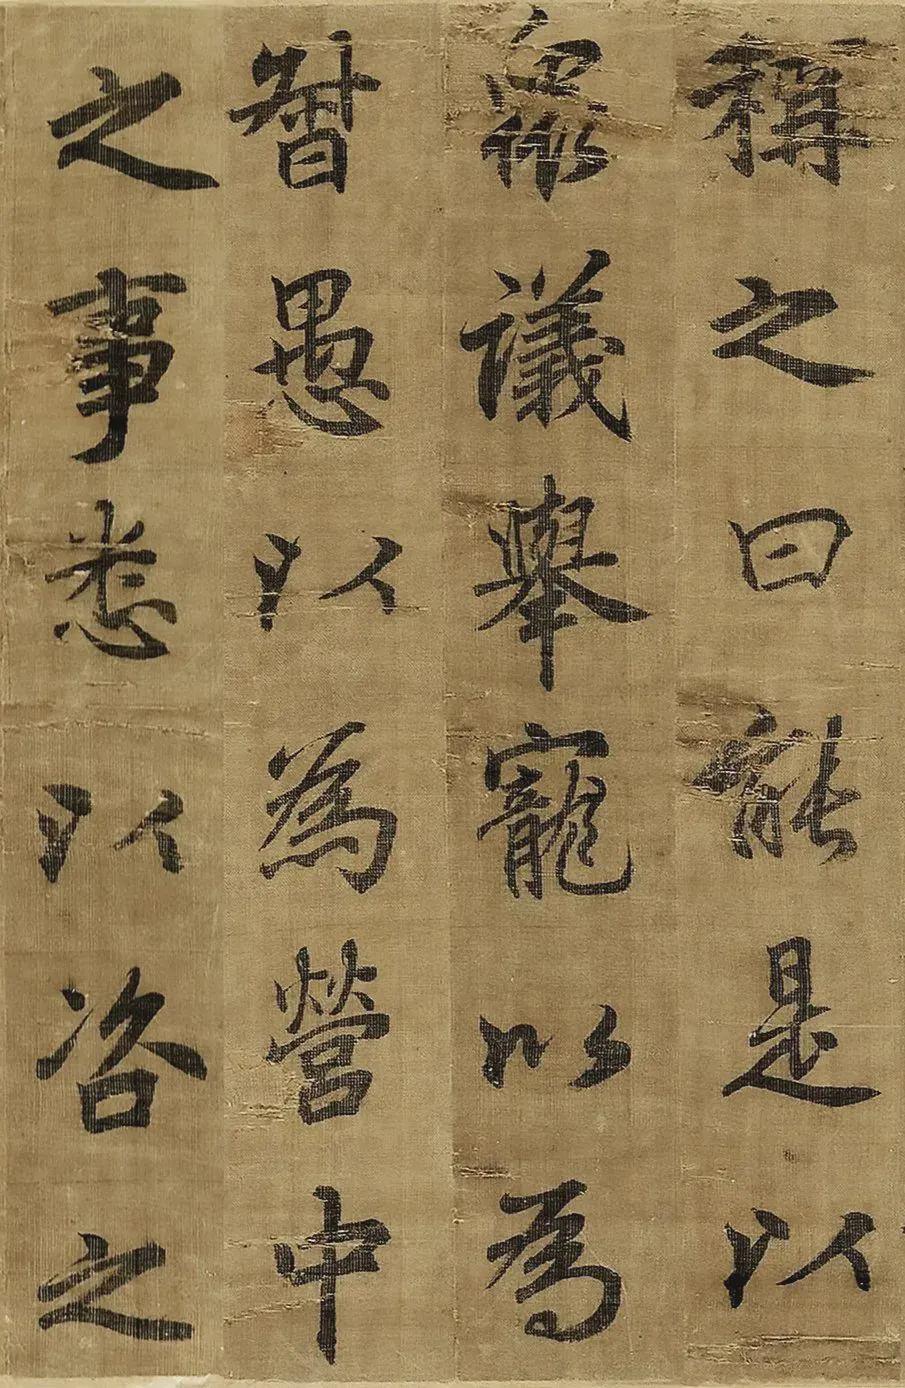 稱之曰能是以
衆議舉寵以為
督愚以為營中
之事悉以咨之